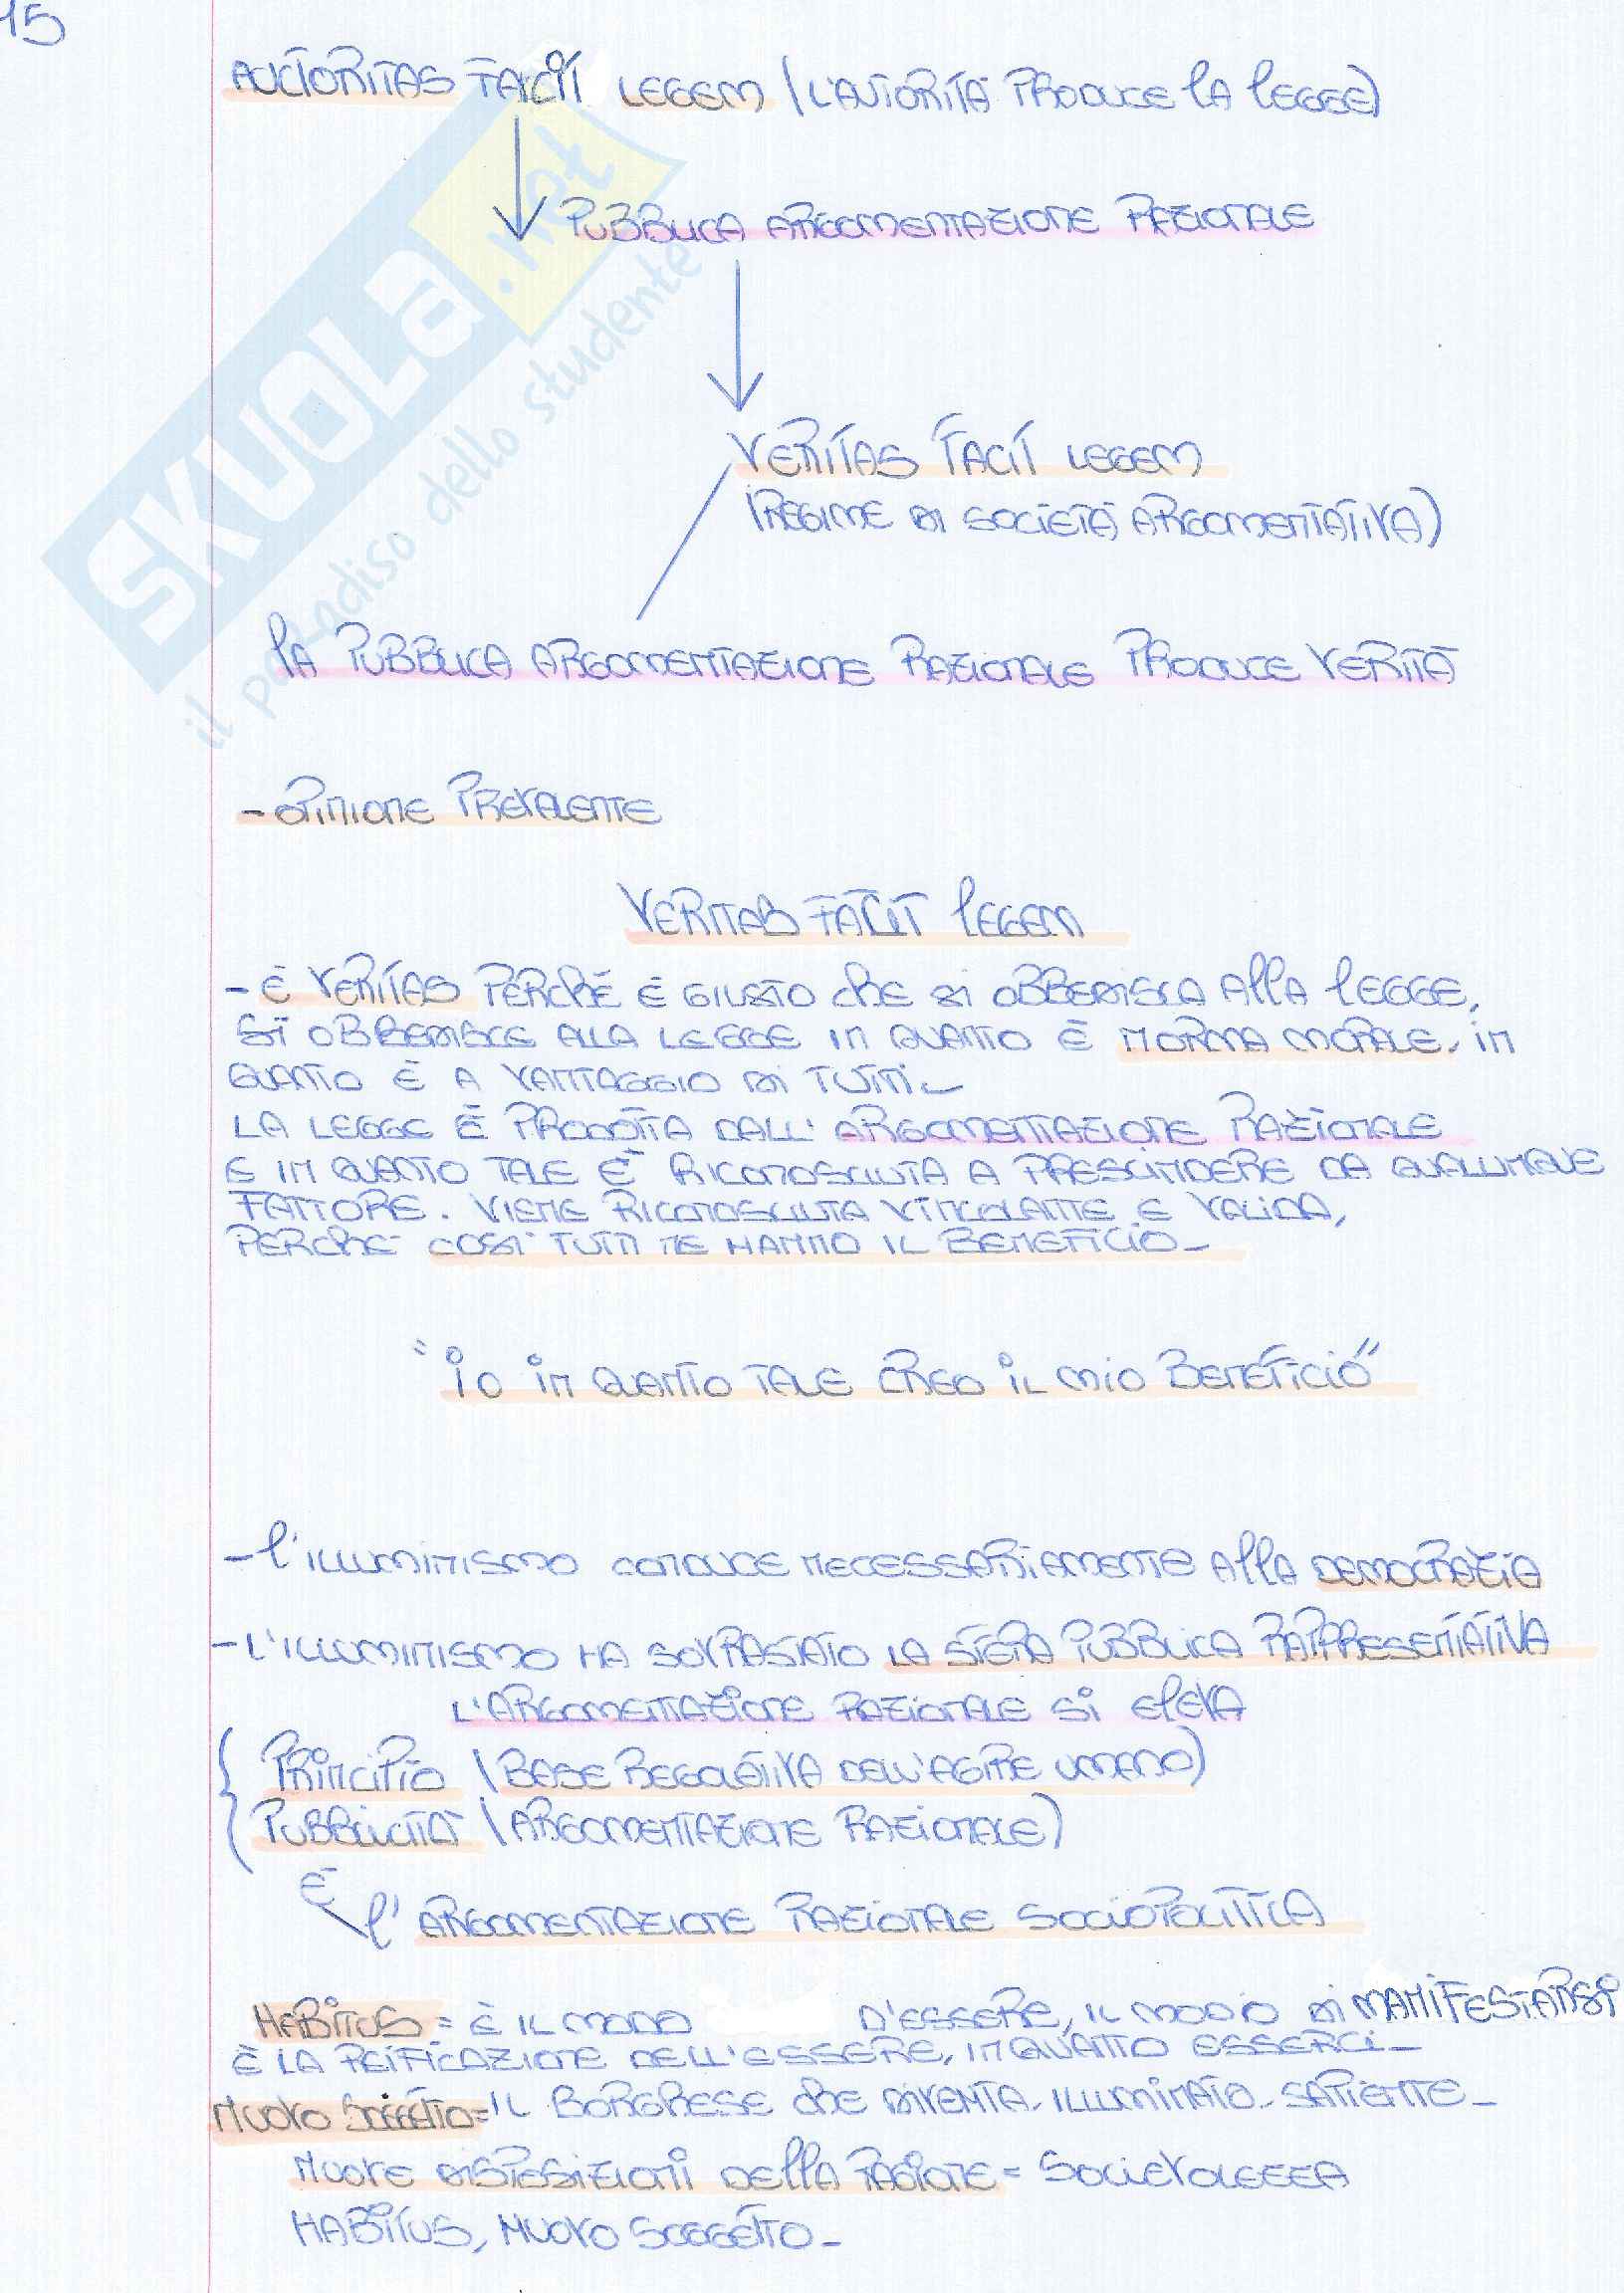 15
AUCTORITAS FACIT LEGEM (L'AUTORITÀ PRODUCE LA LEGGE)
PUBBLICA ARGOMENTAZIONE RAZIONALE
VERITAS FACIT LEGEM
(REGIME DI SOCIETÀ ARGOMENTATIVA)
LA PUBBLICA ARGOMENTAZIONE RAZIONALE PRODUCE VERITÀ
- OPINIONE PREVALENTE
VERITAS FACIT LEGEM
- È VERITAS PERCHÉ È GIUSTO CHE SI OBBEDISCA ALLA LEGGE,
SI OBBEDISCE ALLA LEGGE IN QUANTO È NORMA MORALE, IN
QUANTO È A VANTAGGIO DI TUTTI-
LA LEGGE È PRODOTTA DALL'ARGOMENTAZIONE RAZIONALE
E IN QUANTO TALE È RICONOSCIUTA A PRESCINDERE DA QUALUNQUE
FATTORE. VIENE RICONOSCIUTA VINCOLANTE E VALIDA,
PERCHÉ COSÌ TUTTI NE HANNO IL BENEFICIO-
"IO IN QUANTO TALE CREO IL MIO BENEFICIO"
- L'ILLUMINISMO CONDUCE NECESSARIAMENTE ALLA DEMOCRAZIA
- L'ILLUMINISMO HA SOVRASTATO LA SFERA PUBBLICA RAPPRESENTATIVA
L'ARGOMENTAZIONE RAZIONALE SI ELEVA
PRINCIPIO (BASE REGOLATIVA DELL'AGIRE UMANO)
PUBBLICITÀ (ARGOMENTAZIONE RAZIONALE)
È
L'ARGOMENTAZIONE RAZIONALE SOCIOPOLITICA
HABITUS = È IL MODO D'ESSERE, IL MODO DI MANIFESTARSI
È LA REIFICAZIONE DELL'ESSERE, IN QUANTO ESSERCI-
NUOVO SOGGETTO = IL BORGHESE CHE DIVENTA ILLUMINATO, SAPIENTE-
NUOVE DISPOSIZIONI DELLA RAGIONE = SOCIEVOLEZZA
HABITUS, NUOVO SOGGETTO-
SKUOLA.net
il paradiso dello studente